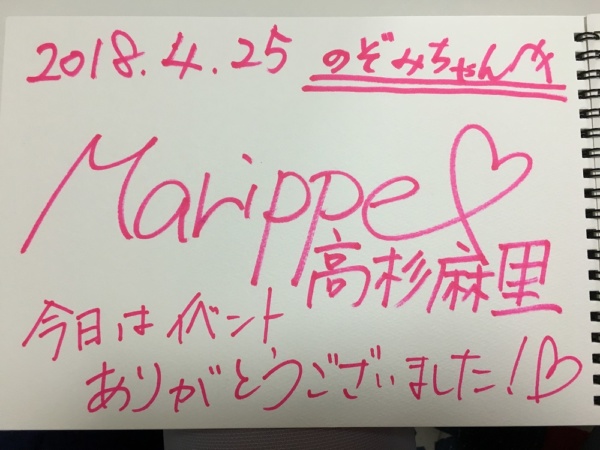 2018.4.25 のぞみちゃん江
Marippe♡
高杉麻里
今日はイベント
ありがとうございました!♡